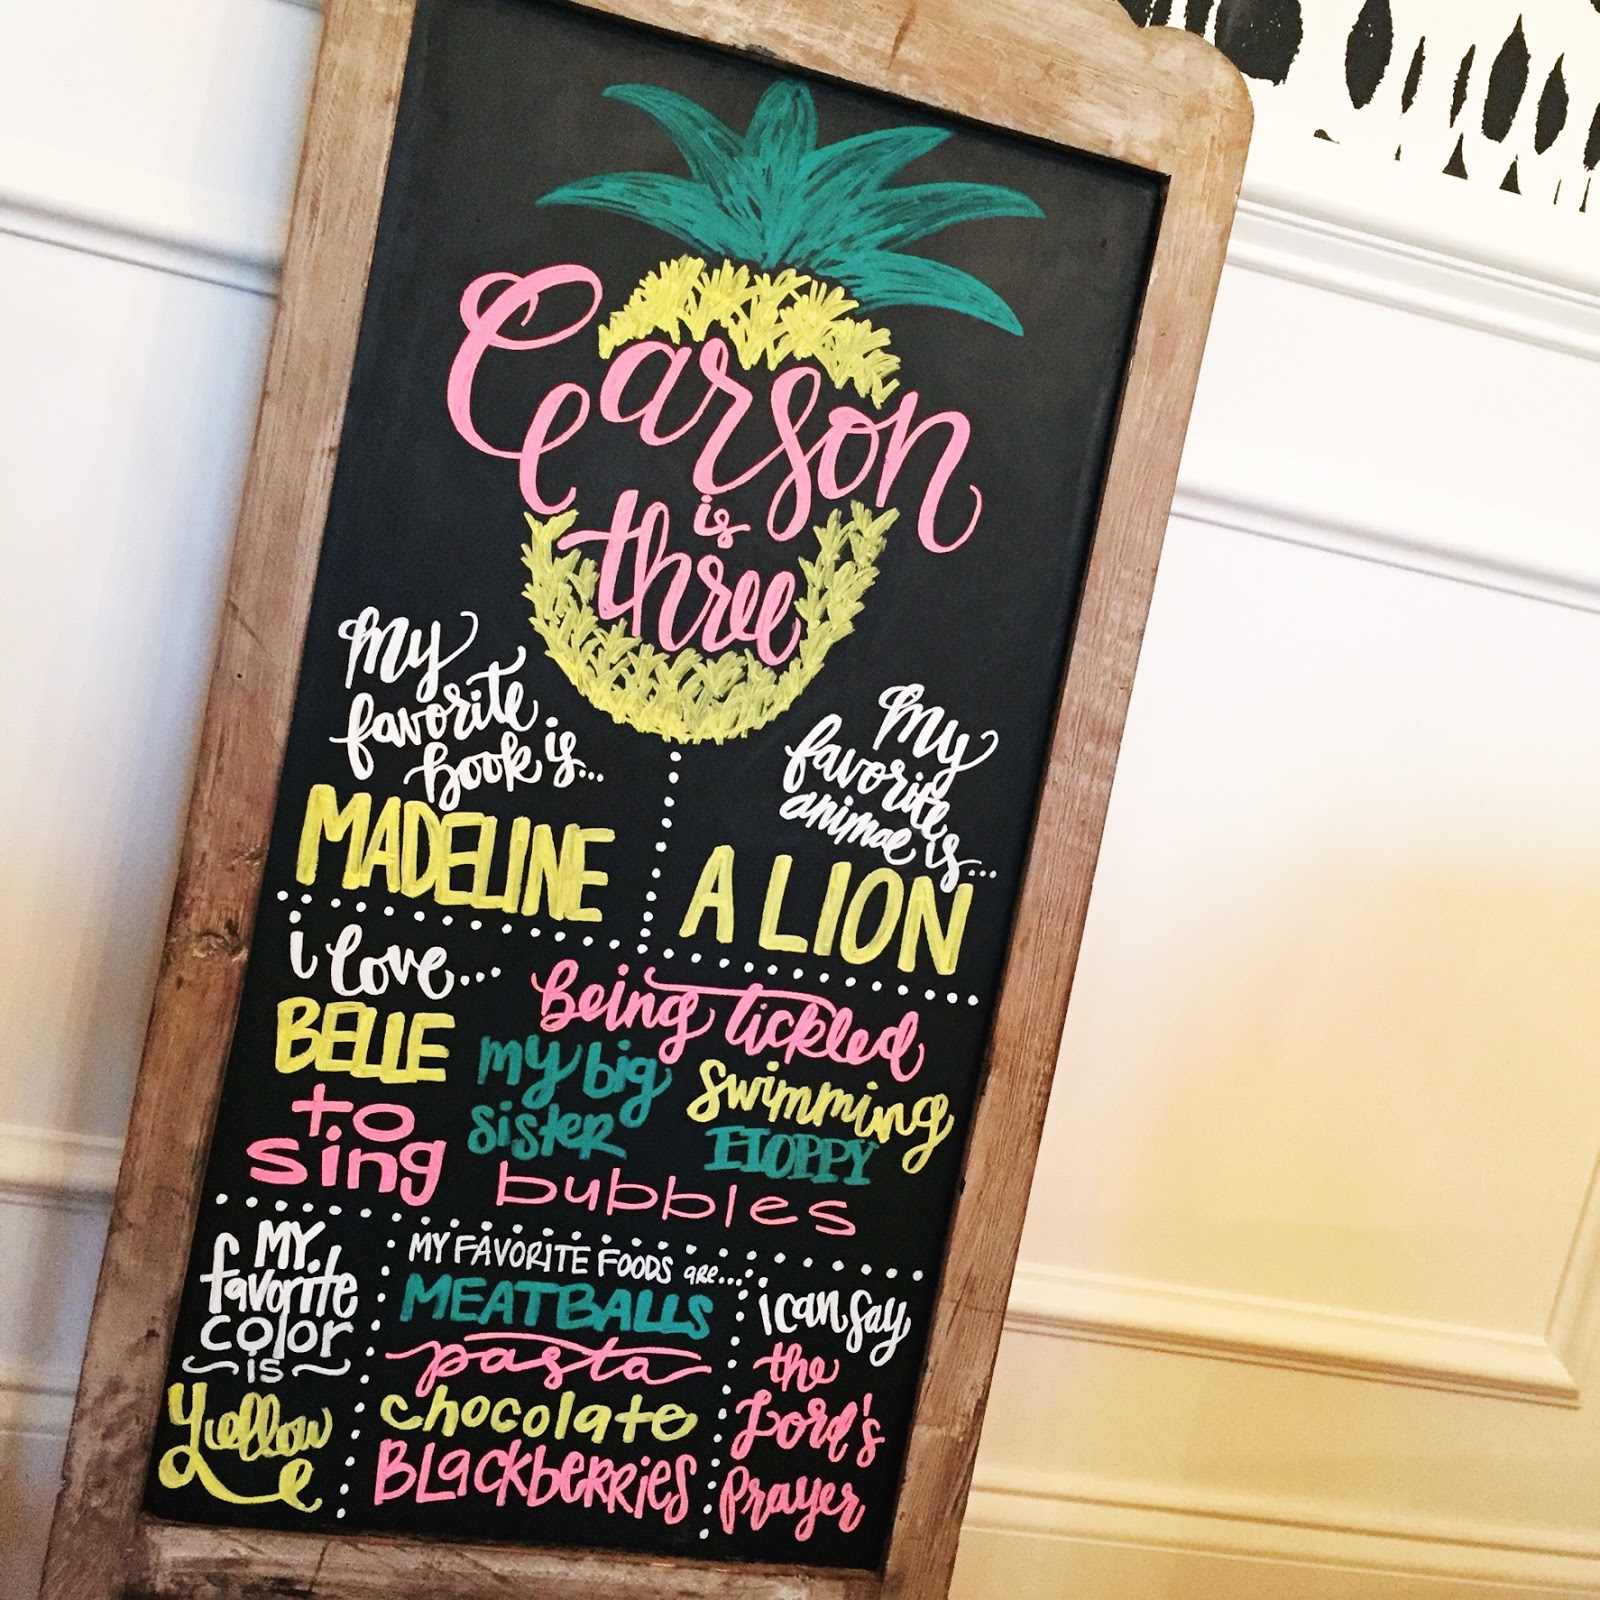 Carson
is
three
My
favorite
book is...
MADELINE
My
favorite
animal is...
A LION
i love...
BELLE
to
sing
being tickled
my big
sister
swimming
FLOPPY
bubbles
MY
favorite
color
is
Yellow
MY FAVORITE FOODS are...
MEATBALLS
pasta
chocolate
BLackberries
i can say
the
Lord's
Prayer